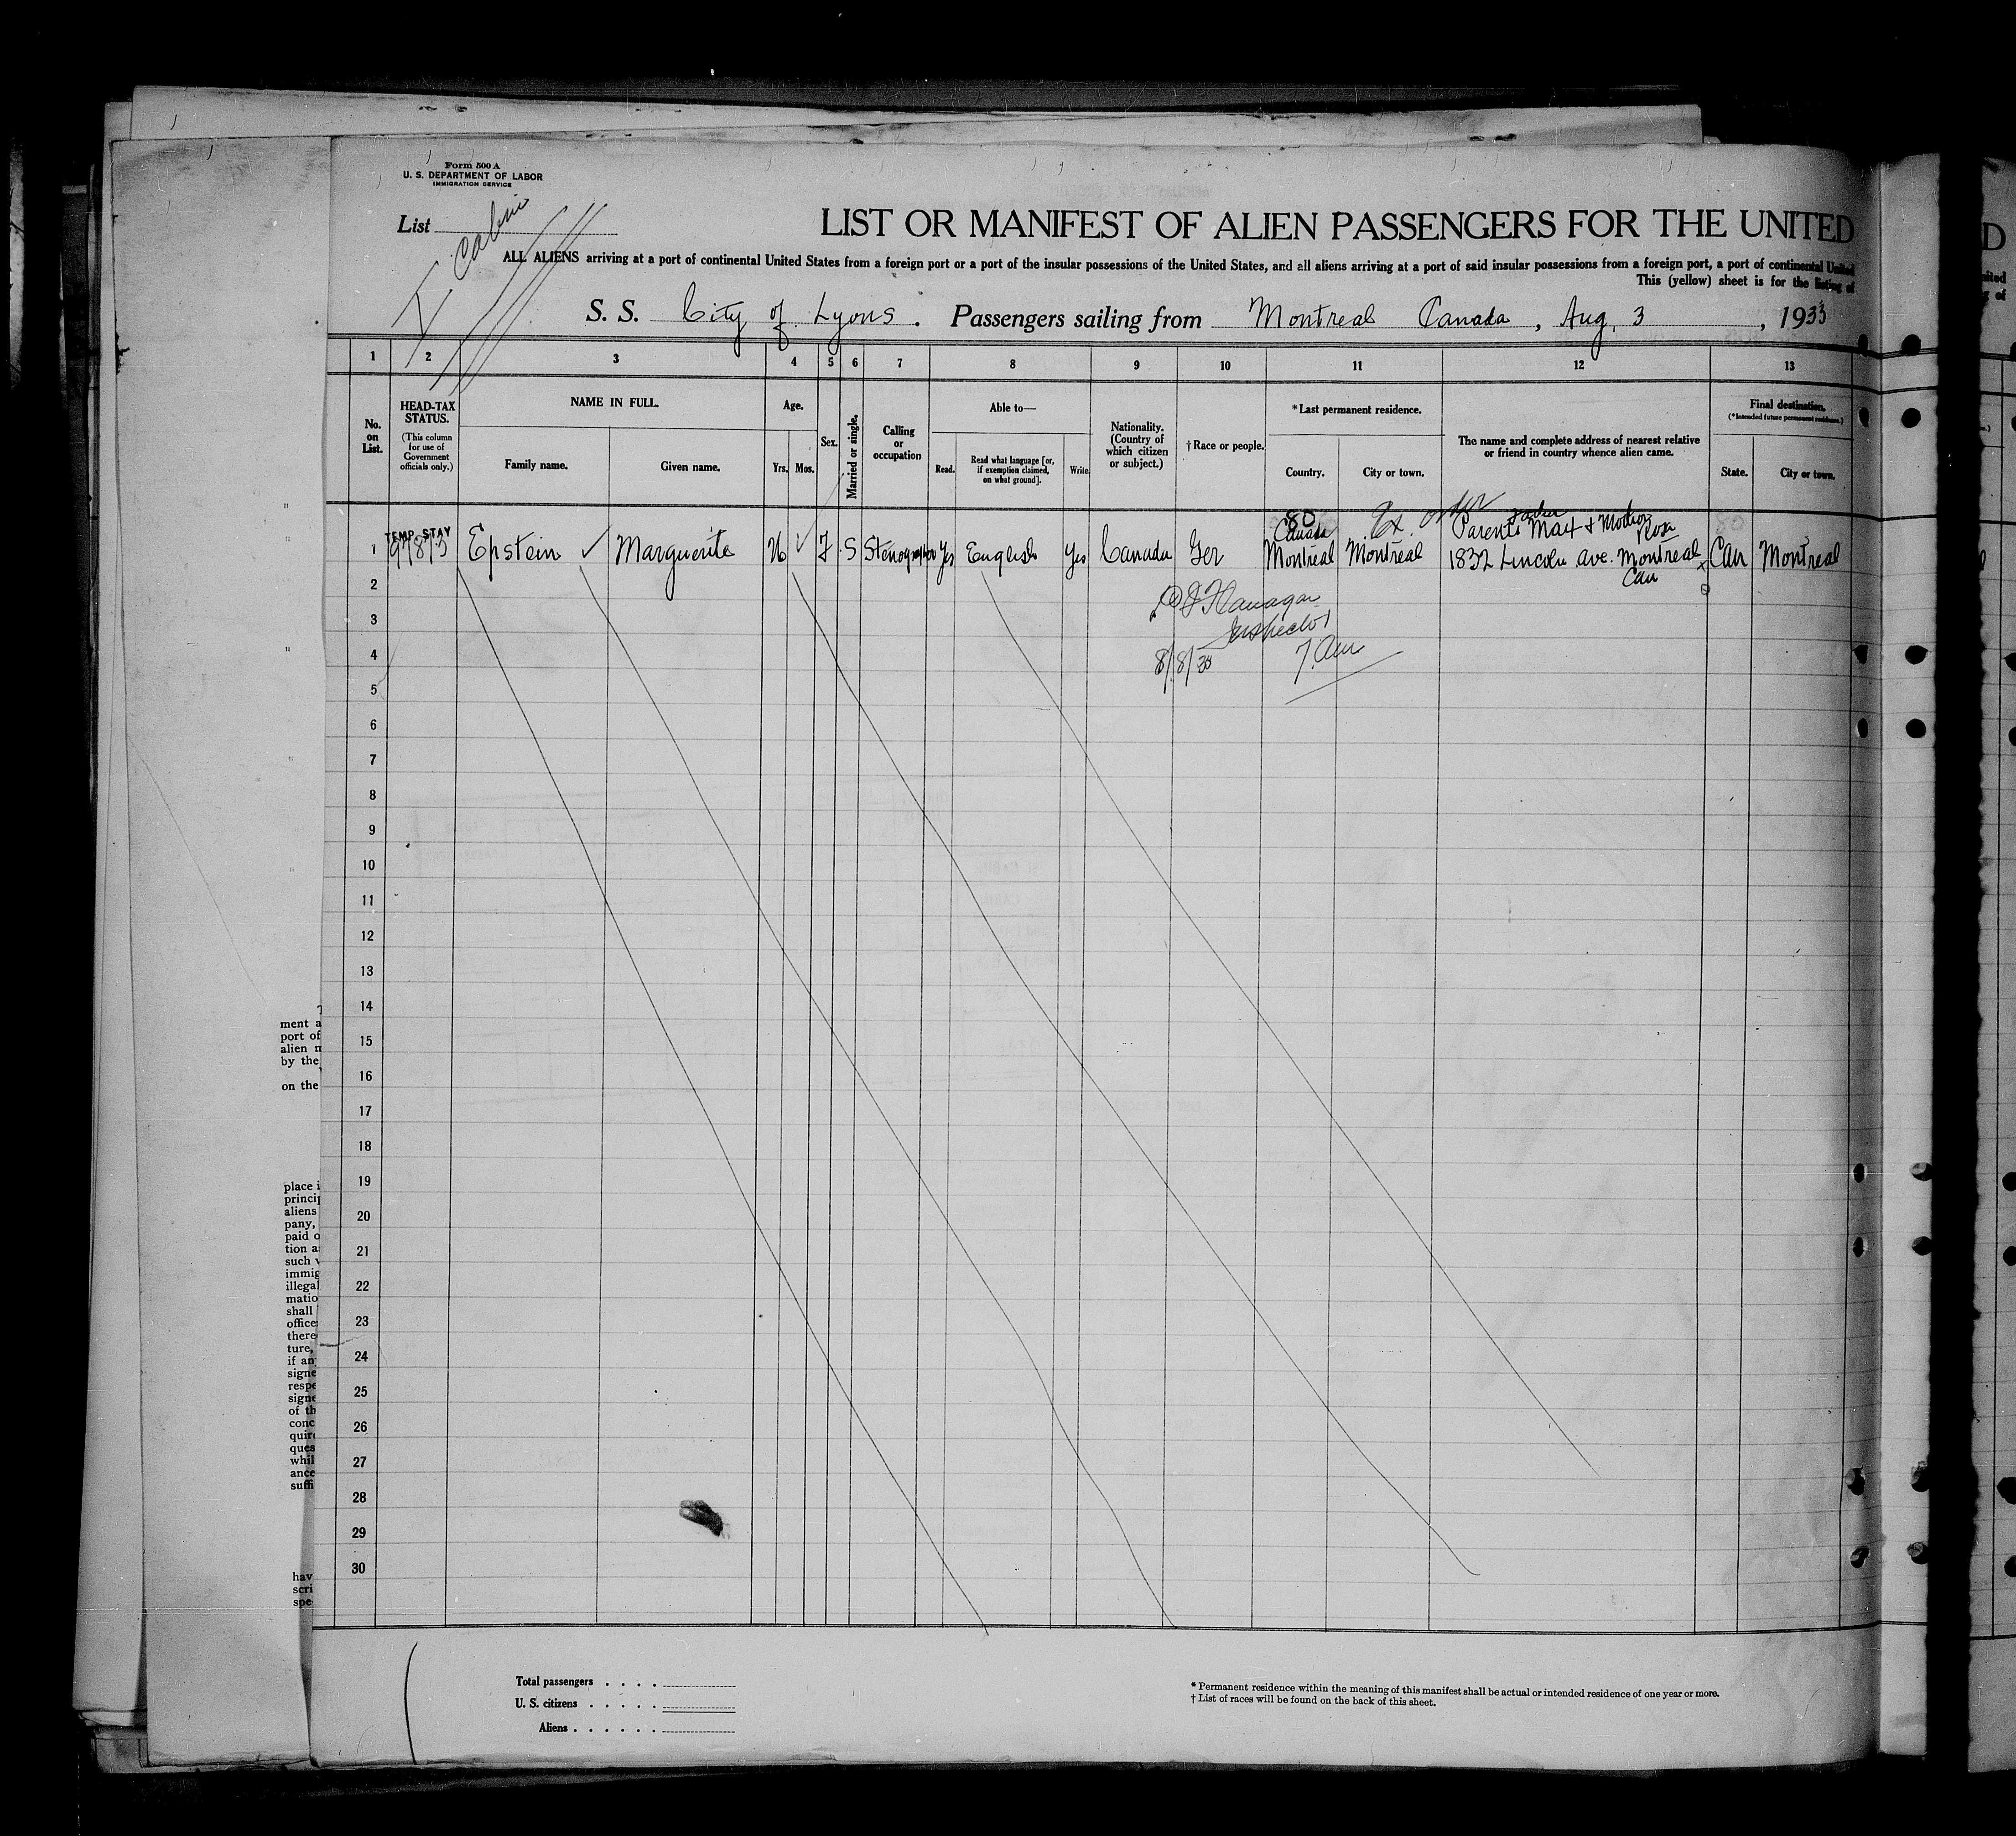 Form 500 A
U. S. DEPARTMENT OF LABOR
IMMIGRATION SERVICE
List
Cabin
LIST OR MANIFEST OF ALIEN PASSENGERS FOR THE UNITED
ALL ALIENS arriving at a port of continental United States from a foreign port or a port of the insular possessions of the United States, and all aliens arriving at a port of said insular possessions from a foreign port, a port of continental United
This (yellow) sheet is for the listing of
S. S. City of Lyons . Passengers sailing from Montreal Canada , Aug. 3 , 1933
1 2 3 4 5 6 7 8 9 10 11 12 13
No. on List.
HEAD-TAX STATUS.
(This column for use of Government officials only.)
NAME IN FULL.
Family name. Given name.
Age.
Yrs. Mos.
Sex.
Married or single.
Calling or occupation
Able to—
Read. Read what language [or, if exemption claimed, on what ground]. Write.
Nationality. (Country of which citizen or subject.)
† Race or people.
*Last permanent residence.
Country. City or town.
The name and complete address of nearest relative or friend in country whence alien came.
Final destination.
(*Intended future permanent residence.)
State. City or town.
80
Ex. order
TEMP. STAY
Canada
Parents Max & Mother Rosa
1 Epstein Marguerite 26 F S Stenographer Yes English Yes Canada Ger Montreal Montreal 1832 Lincoln ave. Montreal Can Montreal
Can
2
Flanagan
3
Inspector
4
8/8/33 7 am
5
6
7
8
9
10
11
12
13
14
15
16
17
18
19
20
21
22
23
24
25
26
27
28
29
30
ment a
port of
alien
by the
on the
place i
princi
aliens
pany,
paid o
tion a
such
immig
illegal
matio
shall
office
there
ture,
if an
signe
respe
signe
of th
conc
quire
ques
whil
ance
suffi
hav
scri
spe
Total passengers . . . .
U. S. citizens . . . . .
Aliens . . . . . .
* Permanent residence within the meaning of this manifest shall be actual or intended residence of one year or more.
† List of races will be found on the back of this sheet.